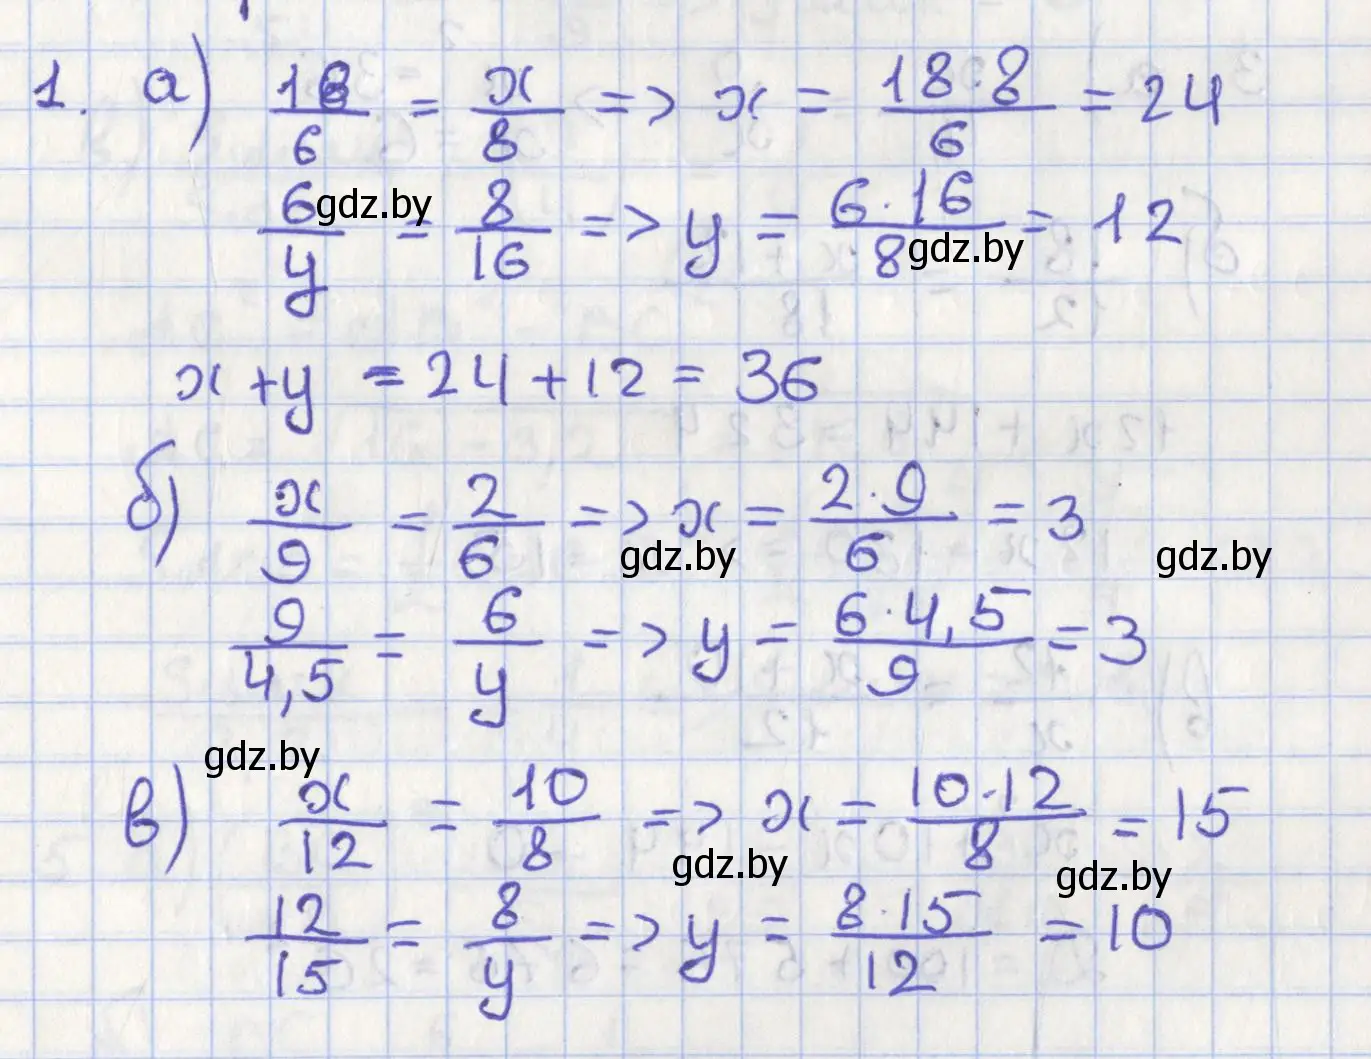 1. а) 18/6 = x/8 => x = 18·8/6 = 24
6/y = 8/16 => y = 6·16/8 = 12
gdz.by
gdz.by
x + y = 24 + 12 = 36
б) x/9 = 2/6 => x = 2·9/6 = 3
gdz.by
gdz.by
9/4,5 = 6/y => y = 6·4,5/9 = 3
gdz.by
в) x/12 = 10/8 => x = 10·12/8 = 15
gdz.by
gdz.by
12/15 = 8/y => y = 8·15/12 = 10